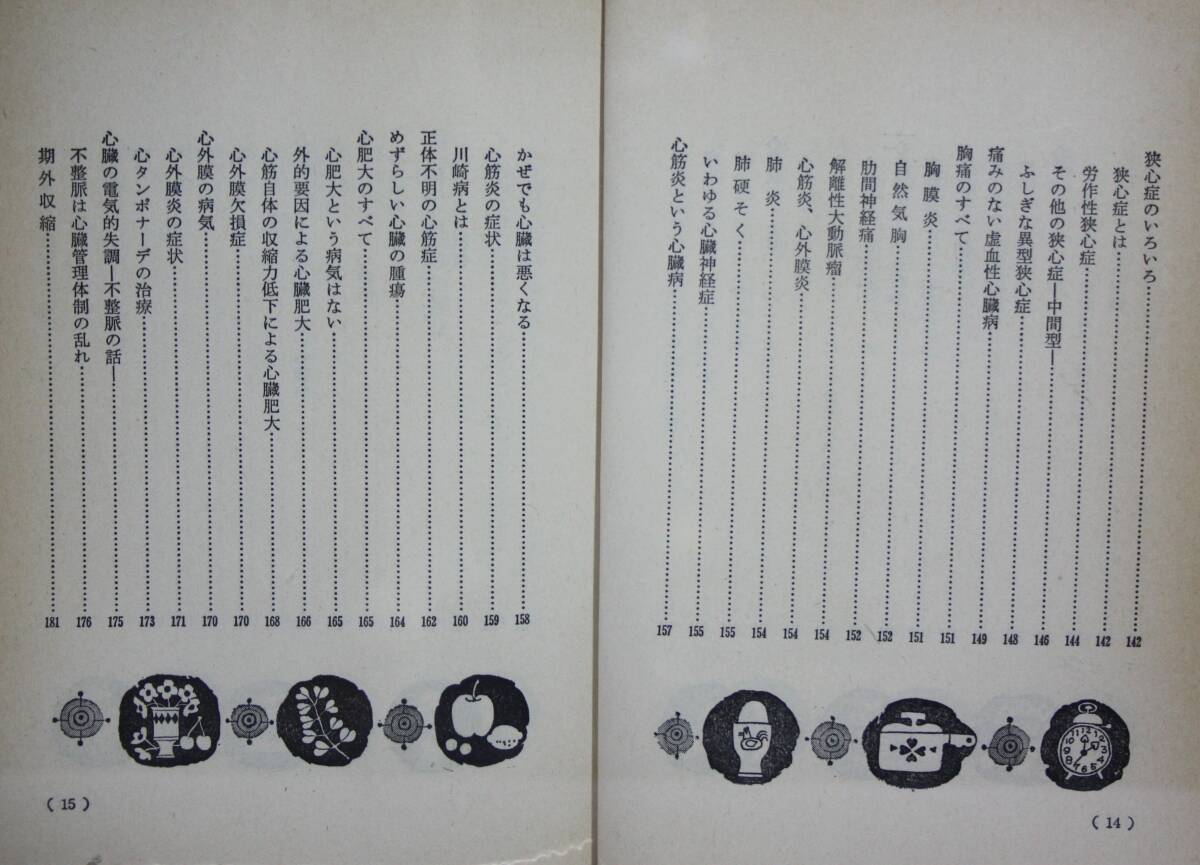 狭心症のいろいろ……142
狭心症とは……142
労作性狭心症……144
その他の狭心症―中間型―……146
ふしぎな異型狭心症……148
痛みのない虚血性心臓病……149
胸痛のすべて……151
胸膜炎……151
自然気胸……152
肋間神経痛……152
解離性大動脈瘤……154
心筋炎、心外膜炎……154
肺炎……154
肺硬そく……155
いわゆる心臓神経症……155
心筋炎という心臓病……157
(14)
かぜでも心臓は悪くなる……158
心筋炎の症状……159
川崎病とは……160
正体不明の心筋症……162
めずらしい心臓の腫瘍……164
心肥大のすべて……165
心肥大という病気はない……165
外的要因による心臓肥大……166
心筋自体の収縮力低下による心臓肥大……168
心外膜欠損症……170
心外膜の病気……170
心外膜炎の症状……171
心タンポナーデの治療……173
心臓の電気的失調―不整脈の話―……175
不整脈は心臓管理体制の乱れ……176
期外収縮……181
(15)
12
11
10
9
8
7
6
5
4
3
2
1